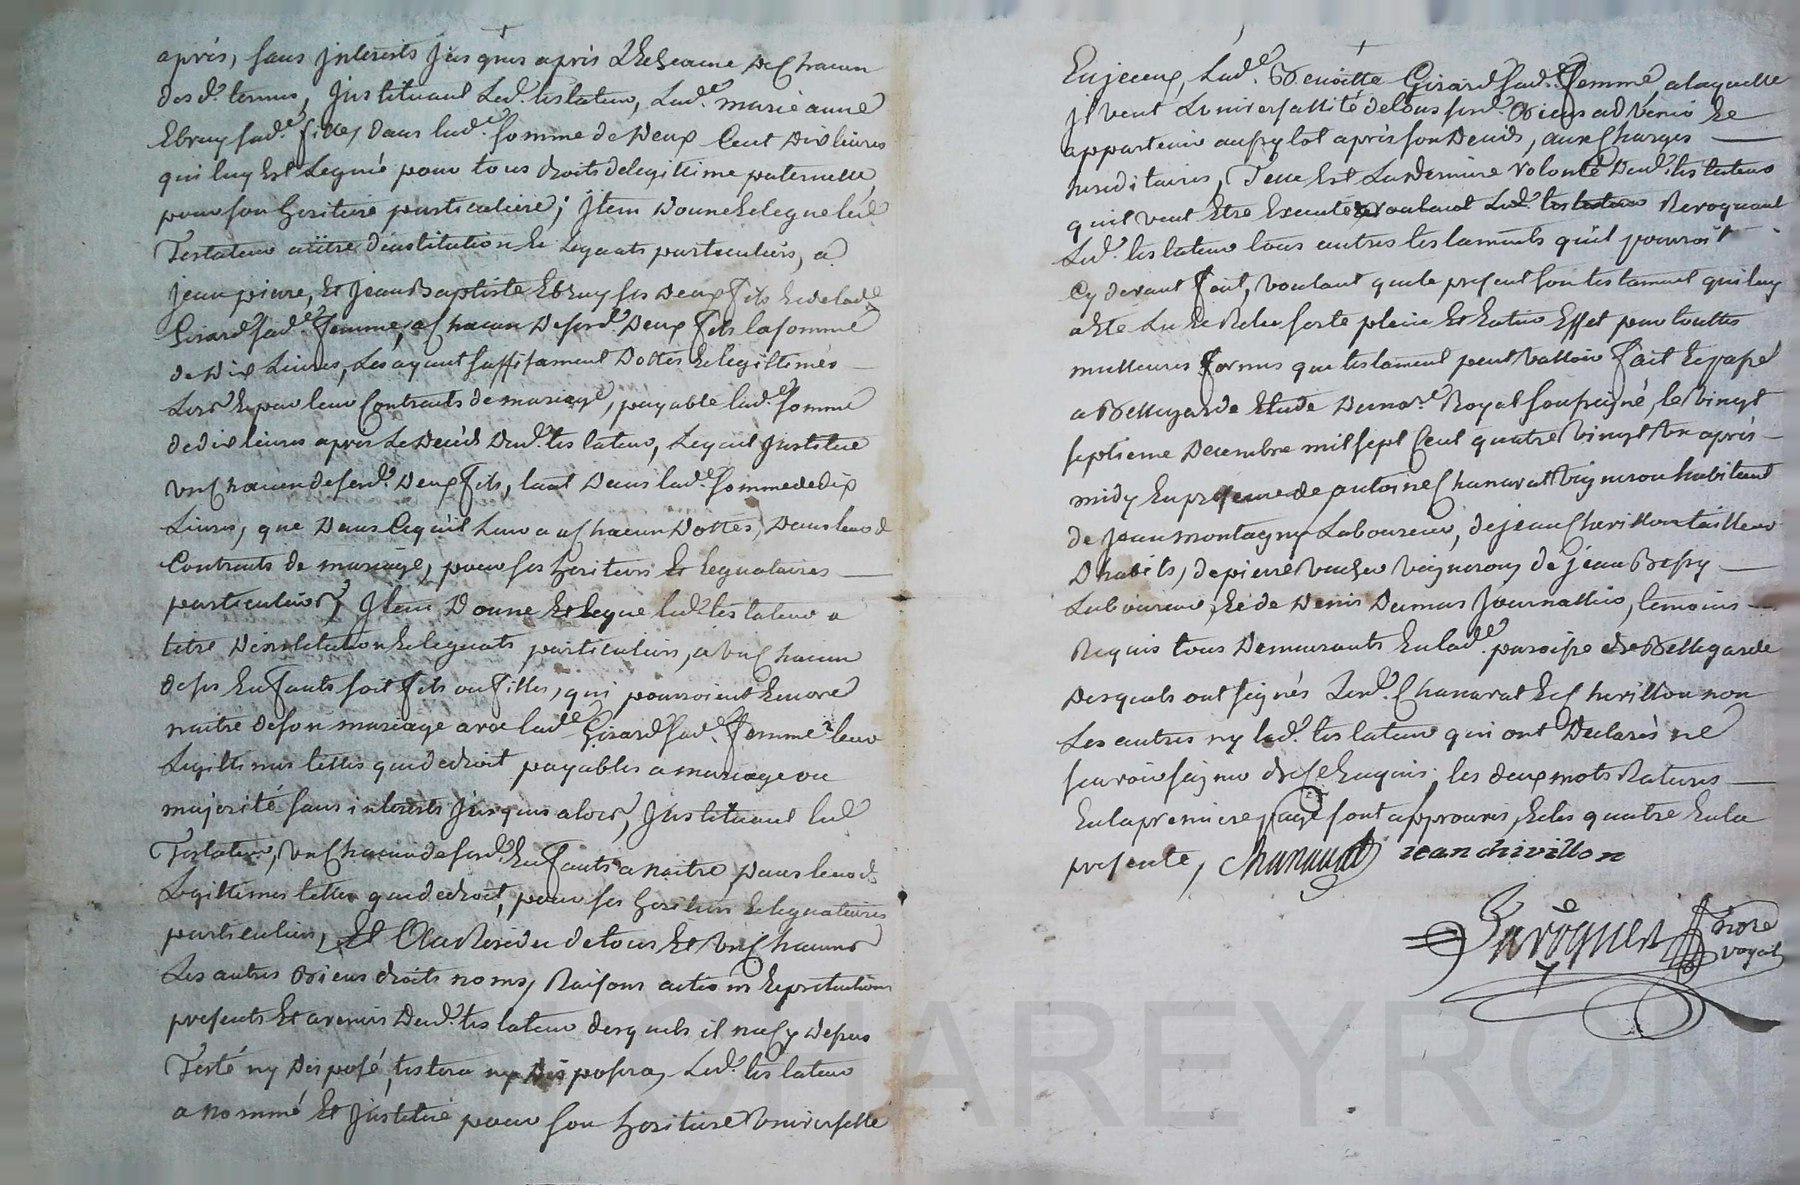 après, sans jnterests jusques après L'Echeance De Chacun
des d.ts termes, Jnstituant Led. testateur, Lad.e marie anne
Ebruy sad.e fille, dans lad.e somme de Deux Cent Dix livres
qui luy Est Leguée pour tous droits de legittime paternelle
pour son heritiere particuliere; Jtem Donne Et legue led
Testateur atitre d'institution Et Leguats particuliers, a
jean pierre, Et Jean Baptiste Ebruy ses Deux fils Et de lad.e
Girard sad.e femme, a Chacun De sesd. Deux fils la somme
de Dix Livres, Les ayant suffisament Dottés Et legittimés
Lors Et par leur Contracts de mariage, payable lad.e somme
de dix livres après Le Decéds Dud. testateur, Lequel Jnstitue
un Chacun de sesd. Deux fils, tant Dans lad.e somme de dix
Livres, que Dans Ce qu'il Leur a a Chacun Dottés, Dans leurs d
Contracts de mariage, pour ses heritiers Et Leguataires
particuliers, Jtem Donne Et legue led. testateur a
titre D'institution Et leguats particuliers, a un Chacun
de ses Enfants soit fils ou filles, qui pourroient Encore
naitre de son mariage avec lad.e Girard sad.e femme, leur
Legittimes telles que de droit payables a mariage ou
majorité sans interests Jusques alors, Jnstituant led
Testateur, un Chacun de sesd. Enfants a naitre, Dans leurs d
Legittimes telles que de droit, pour ses heritiers Et leguataires
particuliers, Et Au Residu de tous Et un Chacuns
Les autres Biens droits noms, Raisons actions Et pretentions
presents Et avenirs Dud. testateur desquels il n'a Cy Depuis
Testé ny Disposé, testera ny Disposera, Led. testateur
a nommé Et Jnstitué pour son heritiere Universelle
Lad.e Benoitte Girard sad.e femme, a laquelle
jl veut L'universallité de tous sesd. Biens advenir Et
appartenir aussytot après son Decéds, aux Charges
hereditaires, Telle Est La Derniere Volonté Dud. testateur
qu'il veut Etre Executée voulant Led. testateur Revoquant
Led. testateur tous autres testaments qu'il pourroit
Cy devant fait, voulant que le present son testament qui luy
a Eté Lu Et Relu sorte plein Et Entier Effet pour touttes
meilleures formes que testament peut valloir fait Et passé
a Bellegarde Etude Du no.re Royal soussigné, le vingt
septieme Decembre mil sept Cent quatre vingt un après
midy En presence de antoine Chanavat Vigneron habitant
de Jean montagny Laboureur, de jean Chevillon tailleur
D'habits, de pierre vacher vigneron, de jean Bessy
Laboureur, Et de Denis Dumas Journallier, temoins
Requis tous Demeurants En lad.e paroisse de Bellegarde
Desquels ont signés Lesd. Chanavat Et Chevillon non
Les autres ny led. testateur qui ont Declarés ne
scavoir signer de Ce Enquis, les deux mots Raturés
En la premiere page sont approuvés, Et les quatre En la
presente, Chanavat jean chivillon
no.re
royal
CHAREYRON